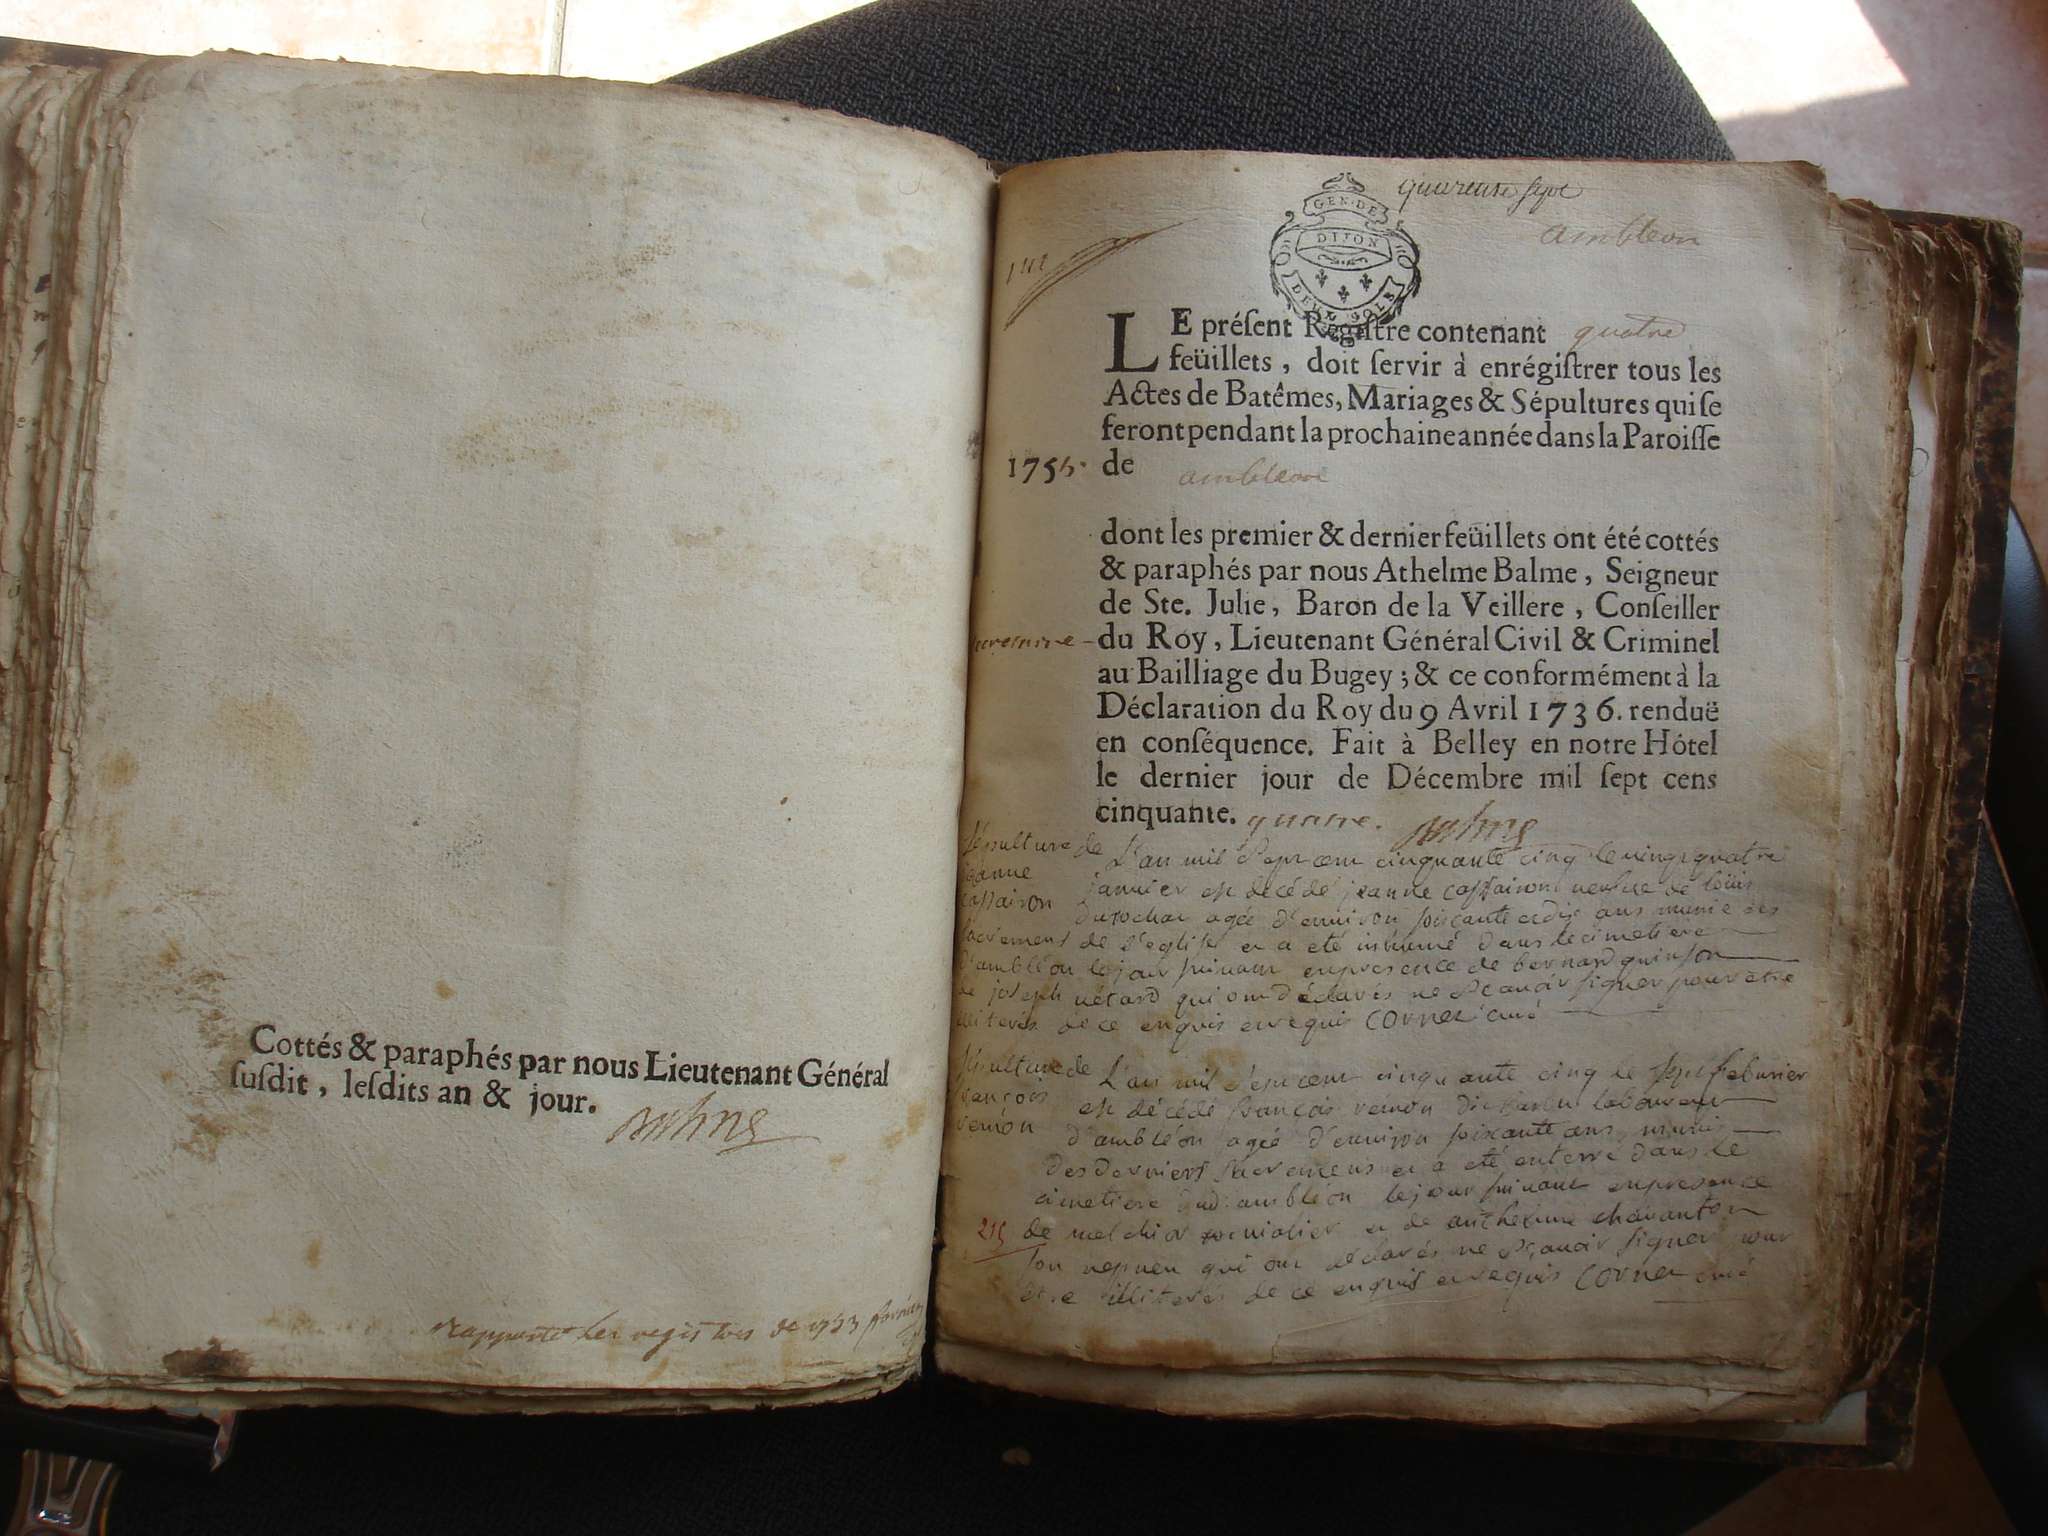 Cottés & paraphés par nous Lieutenant Général
ſuſdit, leſdits an & jour.
les registres de 1753
quarente sept
ambleon
GEN. DE
DIJON
DEUX SOLS
LE préſent Regiſtre contenant quatre
feüillets, doit ſervir à enrégiſtrer tous les
Actes de Batêmes, Mariages & Sépultures qui ſe
feront pendant la prochaine année dans la Paroiſſe
1755. de ambleon
dont les premier & dernier feüillets ont été cottés
& paraphés par nous Athelme Balme, Seigneur
de Ste. Julie, Baron de la Veillere, Conſeiller
du Roy, Lieutenant Général Civil & Criminel
au Bailliage du Bugey; & ce conformément à la
Déclaration du Roy du 9 Avril 1736. renduë
en conſéquence. Fait à Belley en notre Hôtel
le dernier jour de Décembre mil ſept cens
cinquante. quatre.
Sépulture de
jeanne
caſſairon
L'an mil sept cent cinquante cinq le vingt quatre
janvier est décédé jeanne caſſairon veufue de loüis
agée d'environ soixante et dix ans munie des
sacrements de l'eglise et a eté inhumé dans le cimetiere
d'ambléon le jour suivant en presence de bernard quinson
de joseph qui ont déclarés ne sçauoir signer pour etre
illiterés de ce enquis et requis cornet curé
Sépulture de
françois
vernon
L'an mil sept cent cinquante cinq le feburier
est décédé françois laboureur
d'ambléon agée d'environ soixante ans munis
des derniers sacremens et a eté enterré dans le
cimetiere dud. ambléon le jour suivant en presence
215 de melchior et de anthelme chavanton
son nepueu qui ont declarés ne sçauoir signer pour
etre illiteres de ce enquis et requis cornet curé